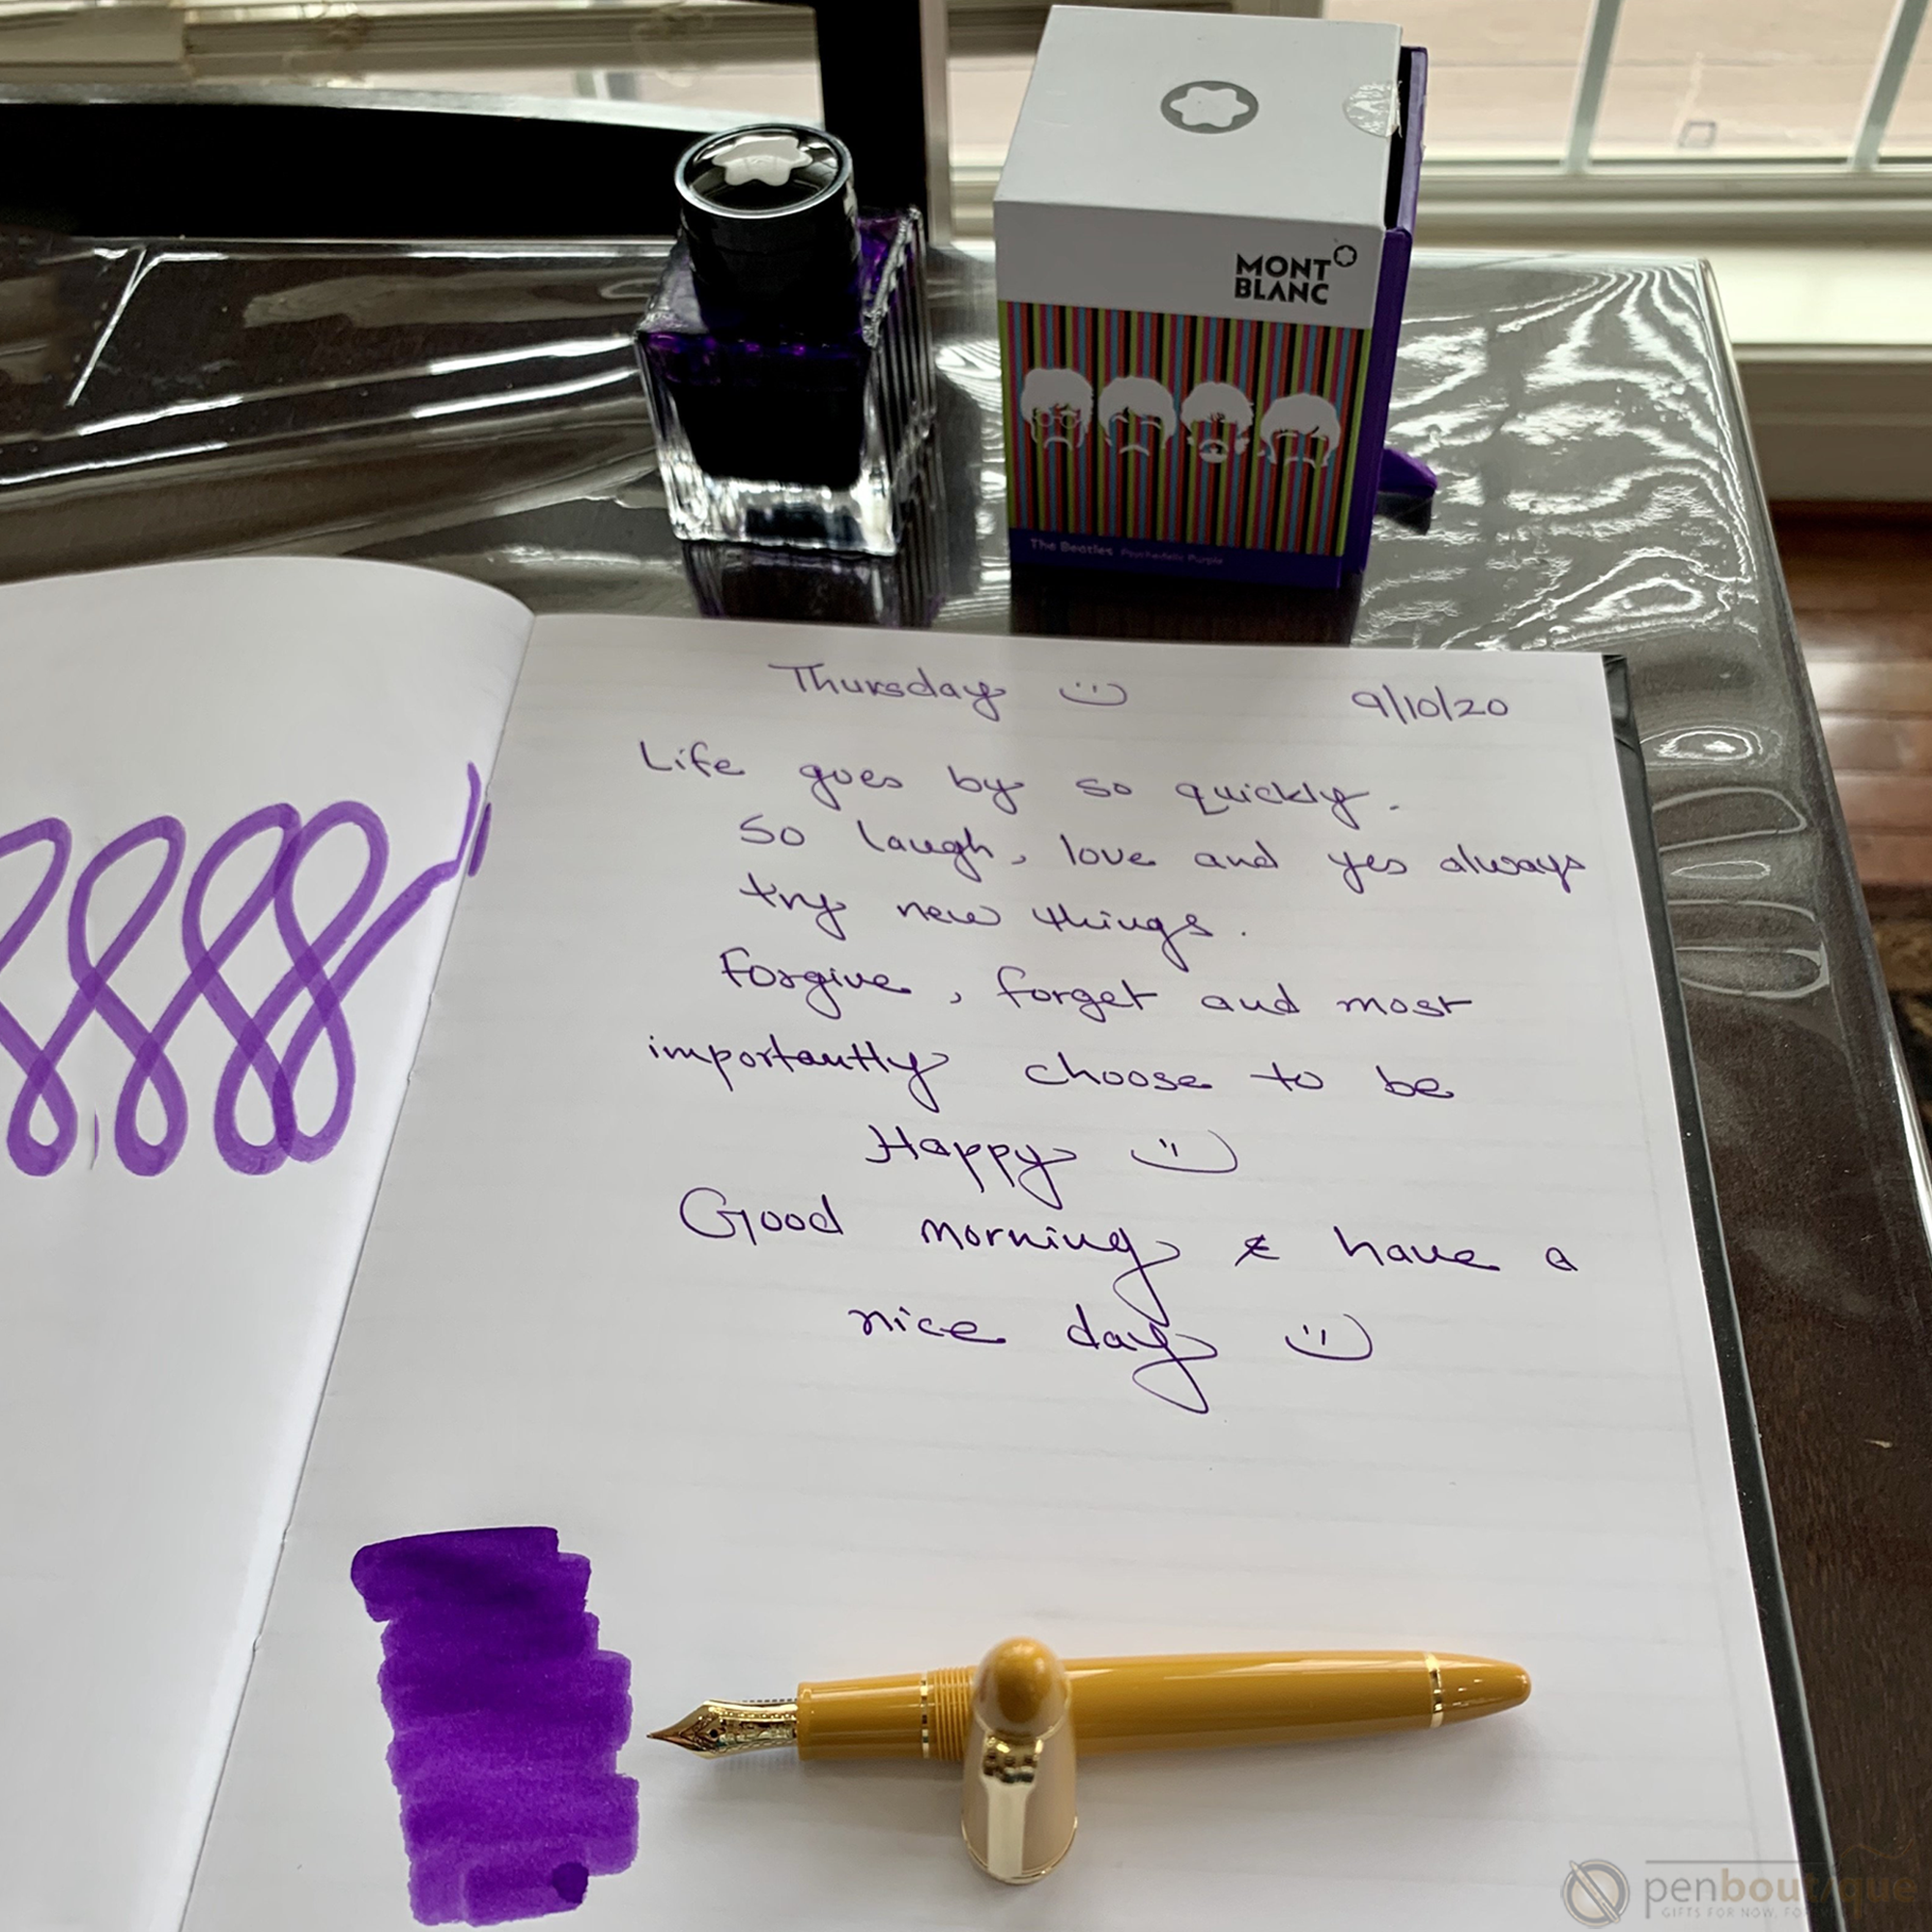 MONT
BLANC
The Beatles Psychedelic Purple
Thursday 9/10/20
Life goes by so quickly.
So laugh, love and yes always
try new things.
Forgive, forget and most
importantly choose to be
Happy
Good morning & have a
nice day
penboutique
GIFTS FOR NOW, FOR